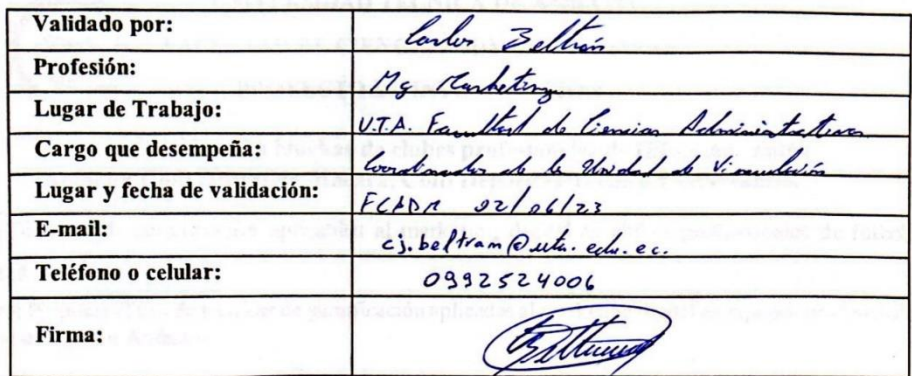 Validado por: Carlos Beltrán
Profesión: Mg Marketing
Lugar de Trabajo: U.T.A. Facultad de Ciencias Administrativas
Cargo que desempeña: Coordinador de la Unidad de Vinculación
Lugar y fecha de validación: FCADM 02/06/23
E-mail: cj.beltran@uta.edu.ec.
Teléfono o celular: 0992524006
Firma: